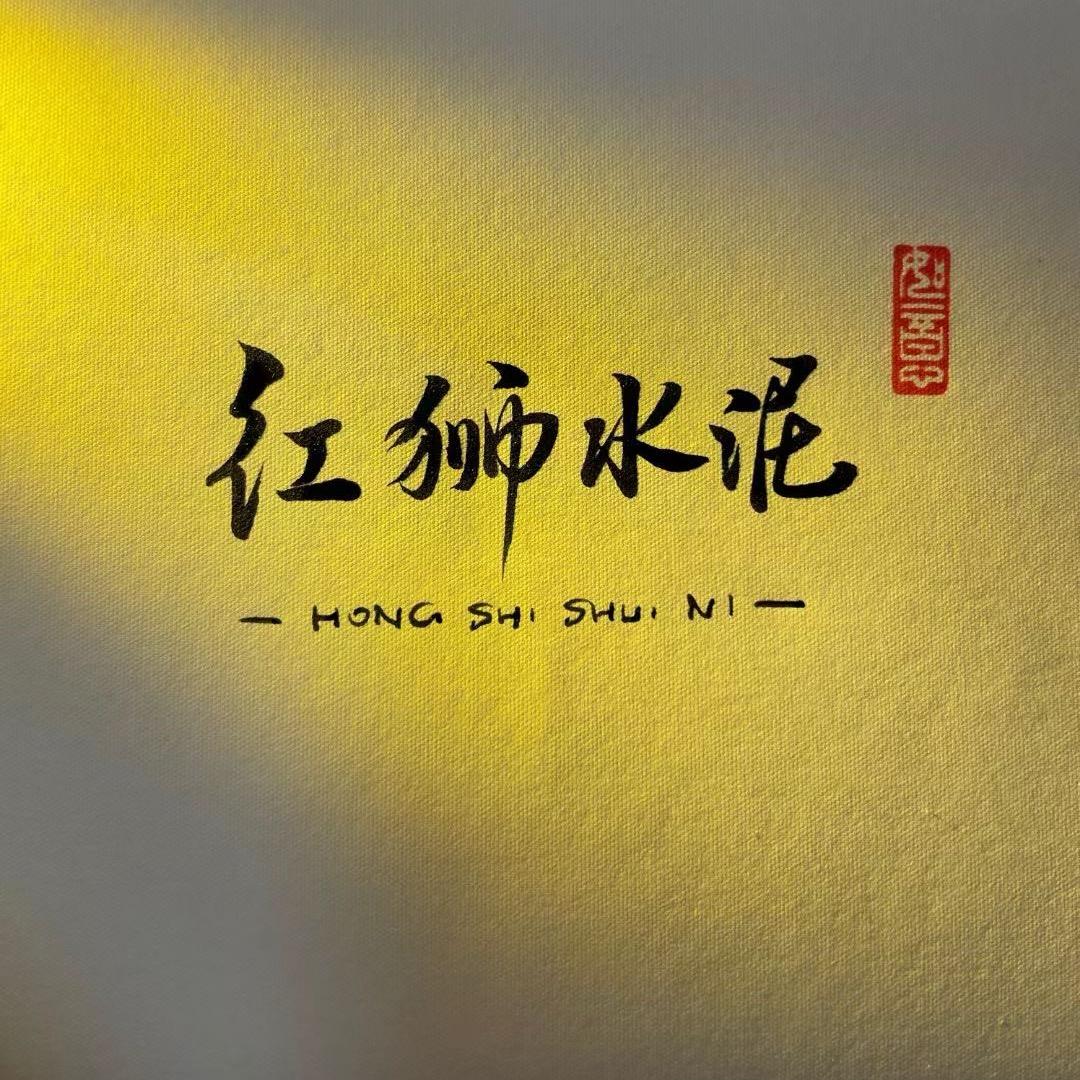 红狮水泥
— HONG SHI SHUI NI —